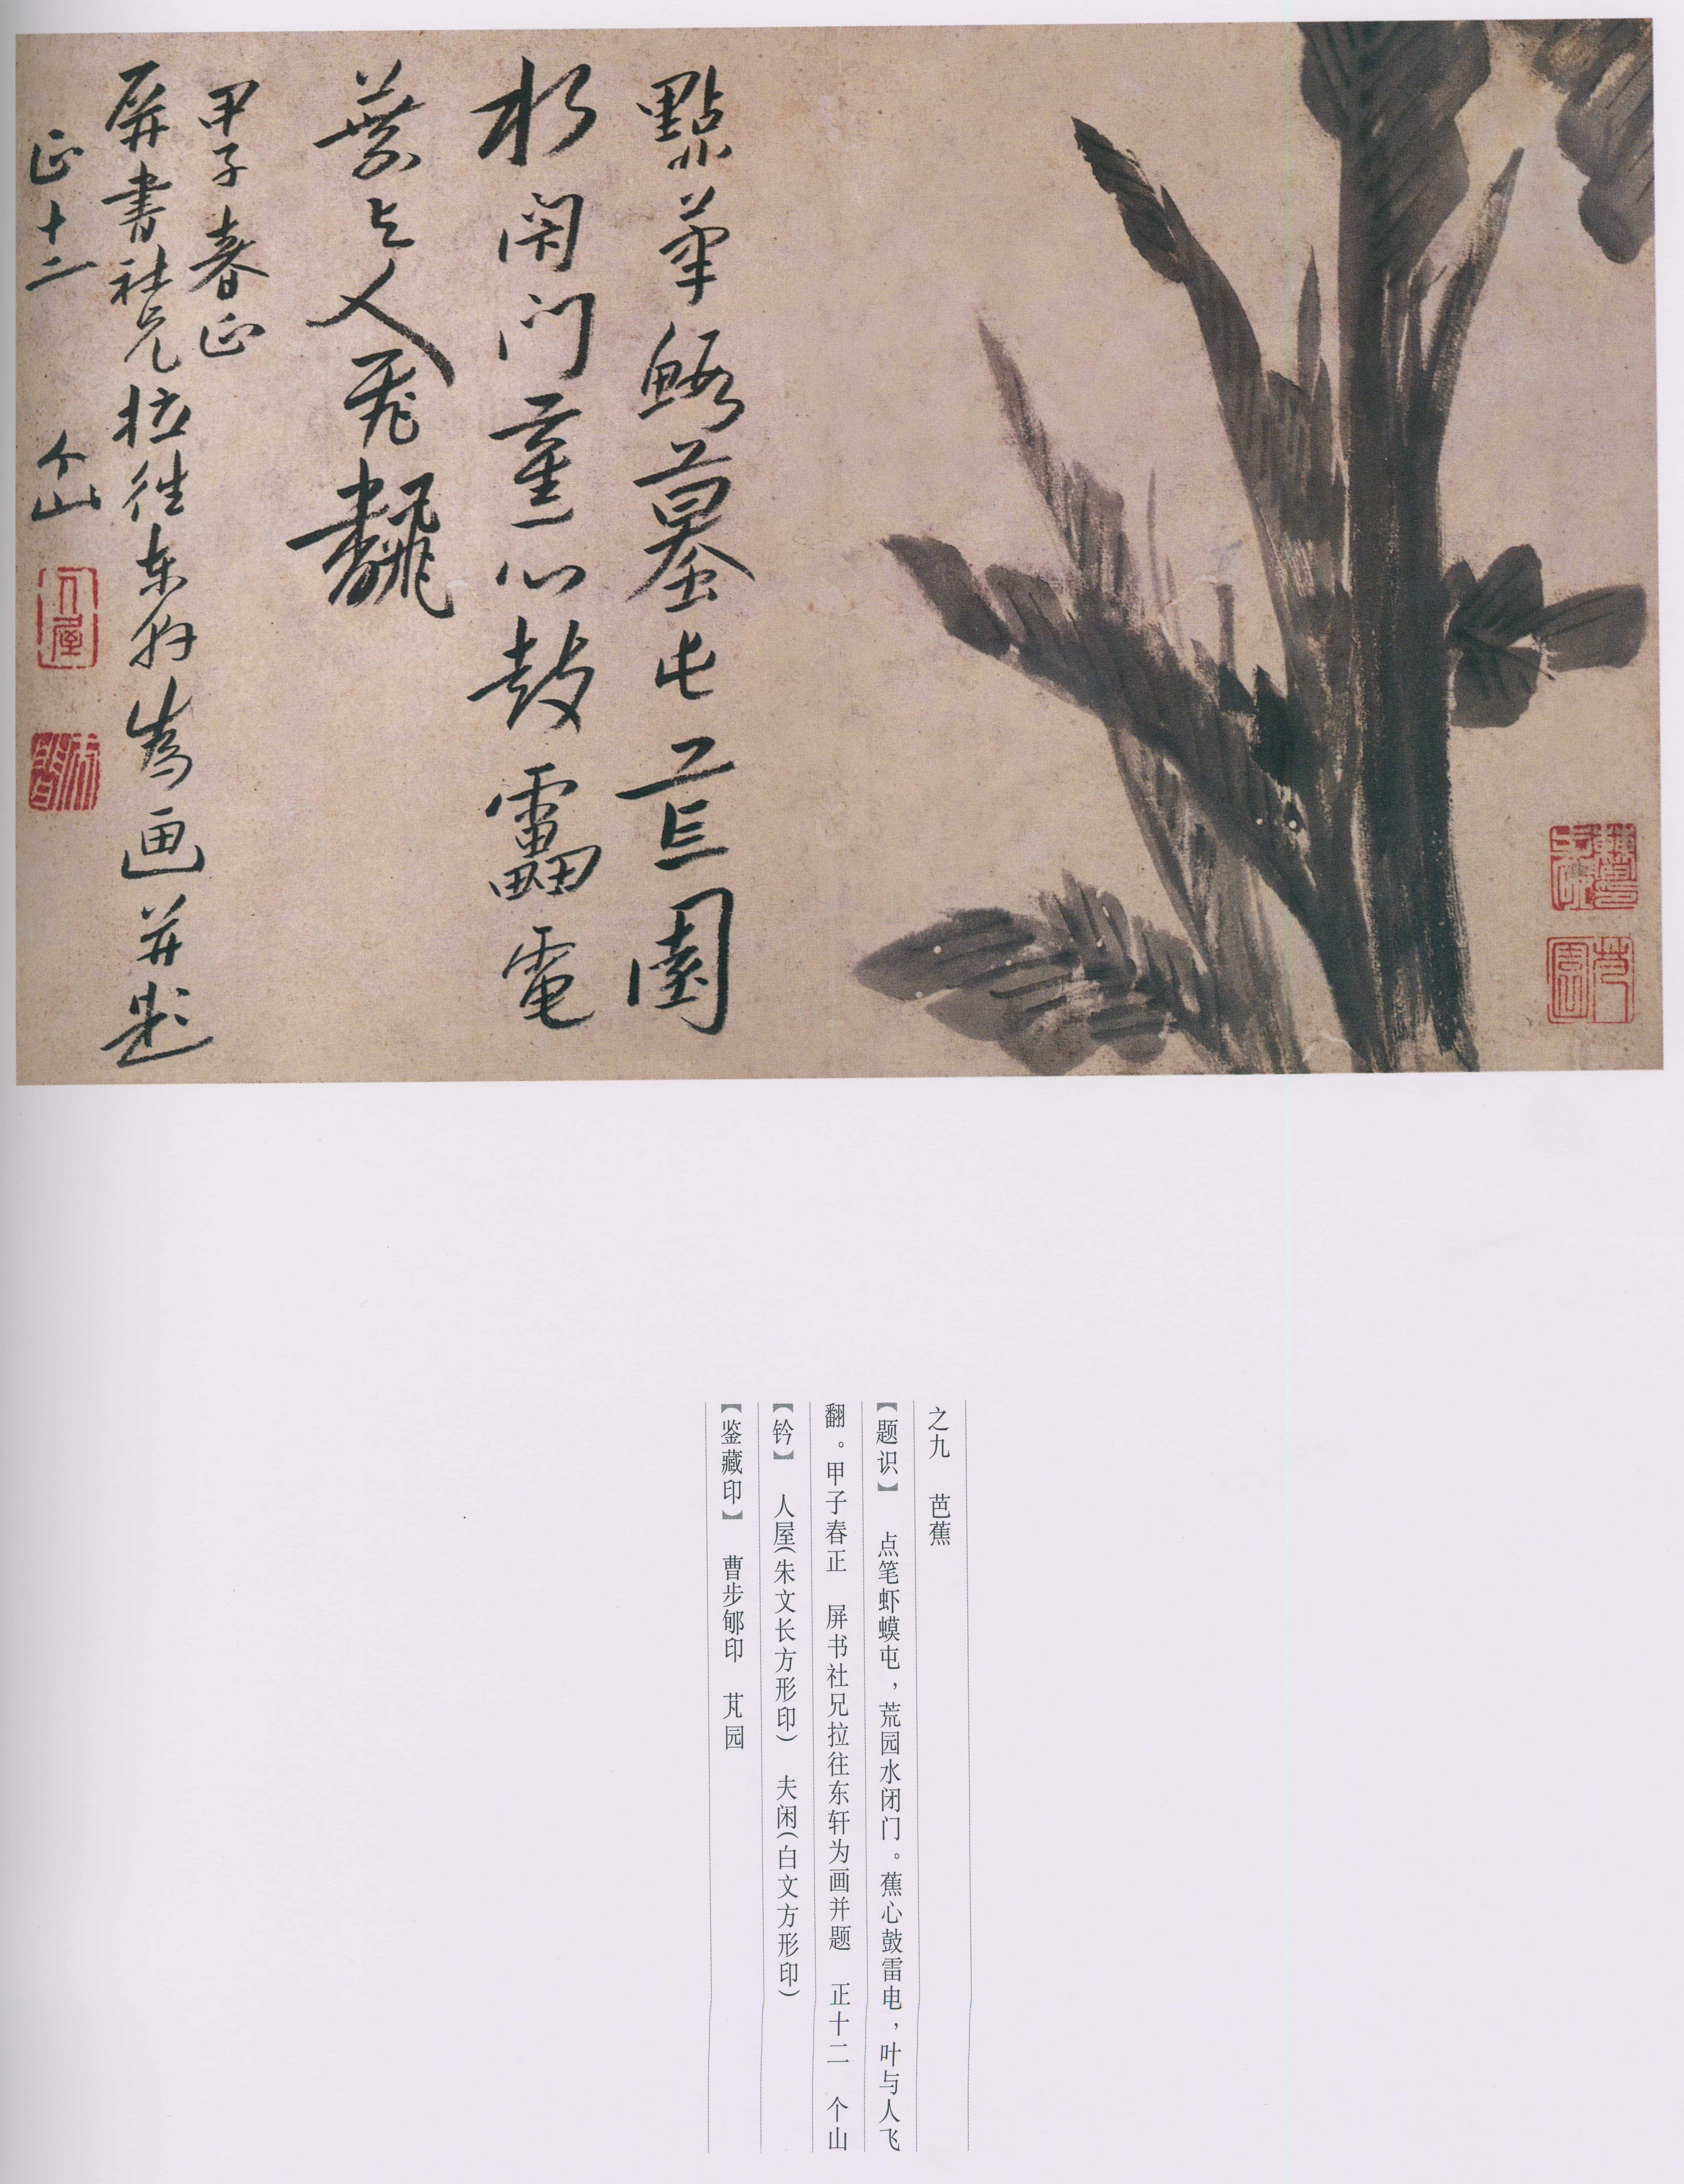 點筆鰕蟇屯荒園
水閉门蕉心鼓靁電
葉与人飛翻
甲子春正
屏書社兄拉往东轩为画并题
正十二 个山
人屋
之九 芭蕉
【题识】 点笔虾蟆屯，荒园水闭门。蕉心鼓雷电，叶与人飞
翻。甲子春正 屏书社兄拉往东轩为画并题 正十二 个山
【钤】 人屋（朱文长方形印） 夫闲（白文方形印）
【鉴藏印】 曹步郇印 芃园